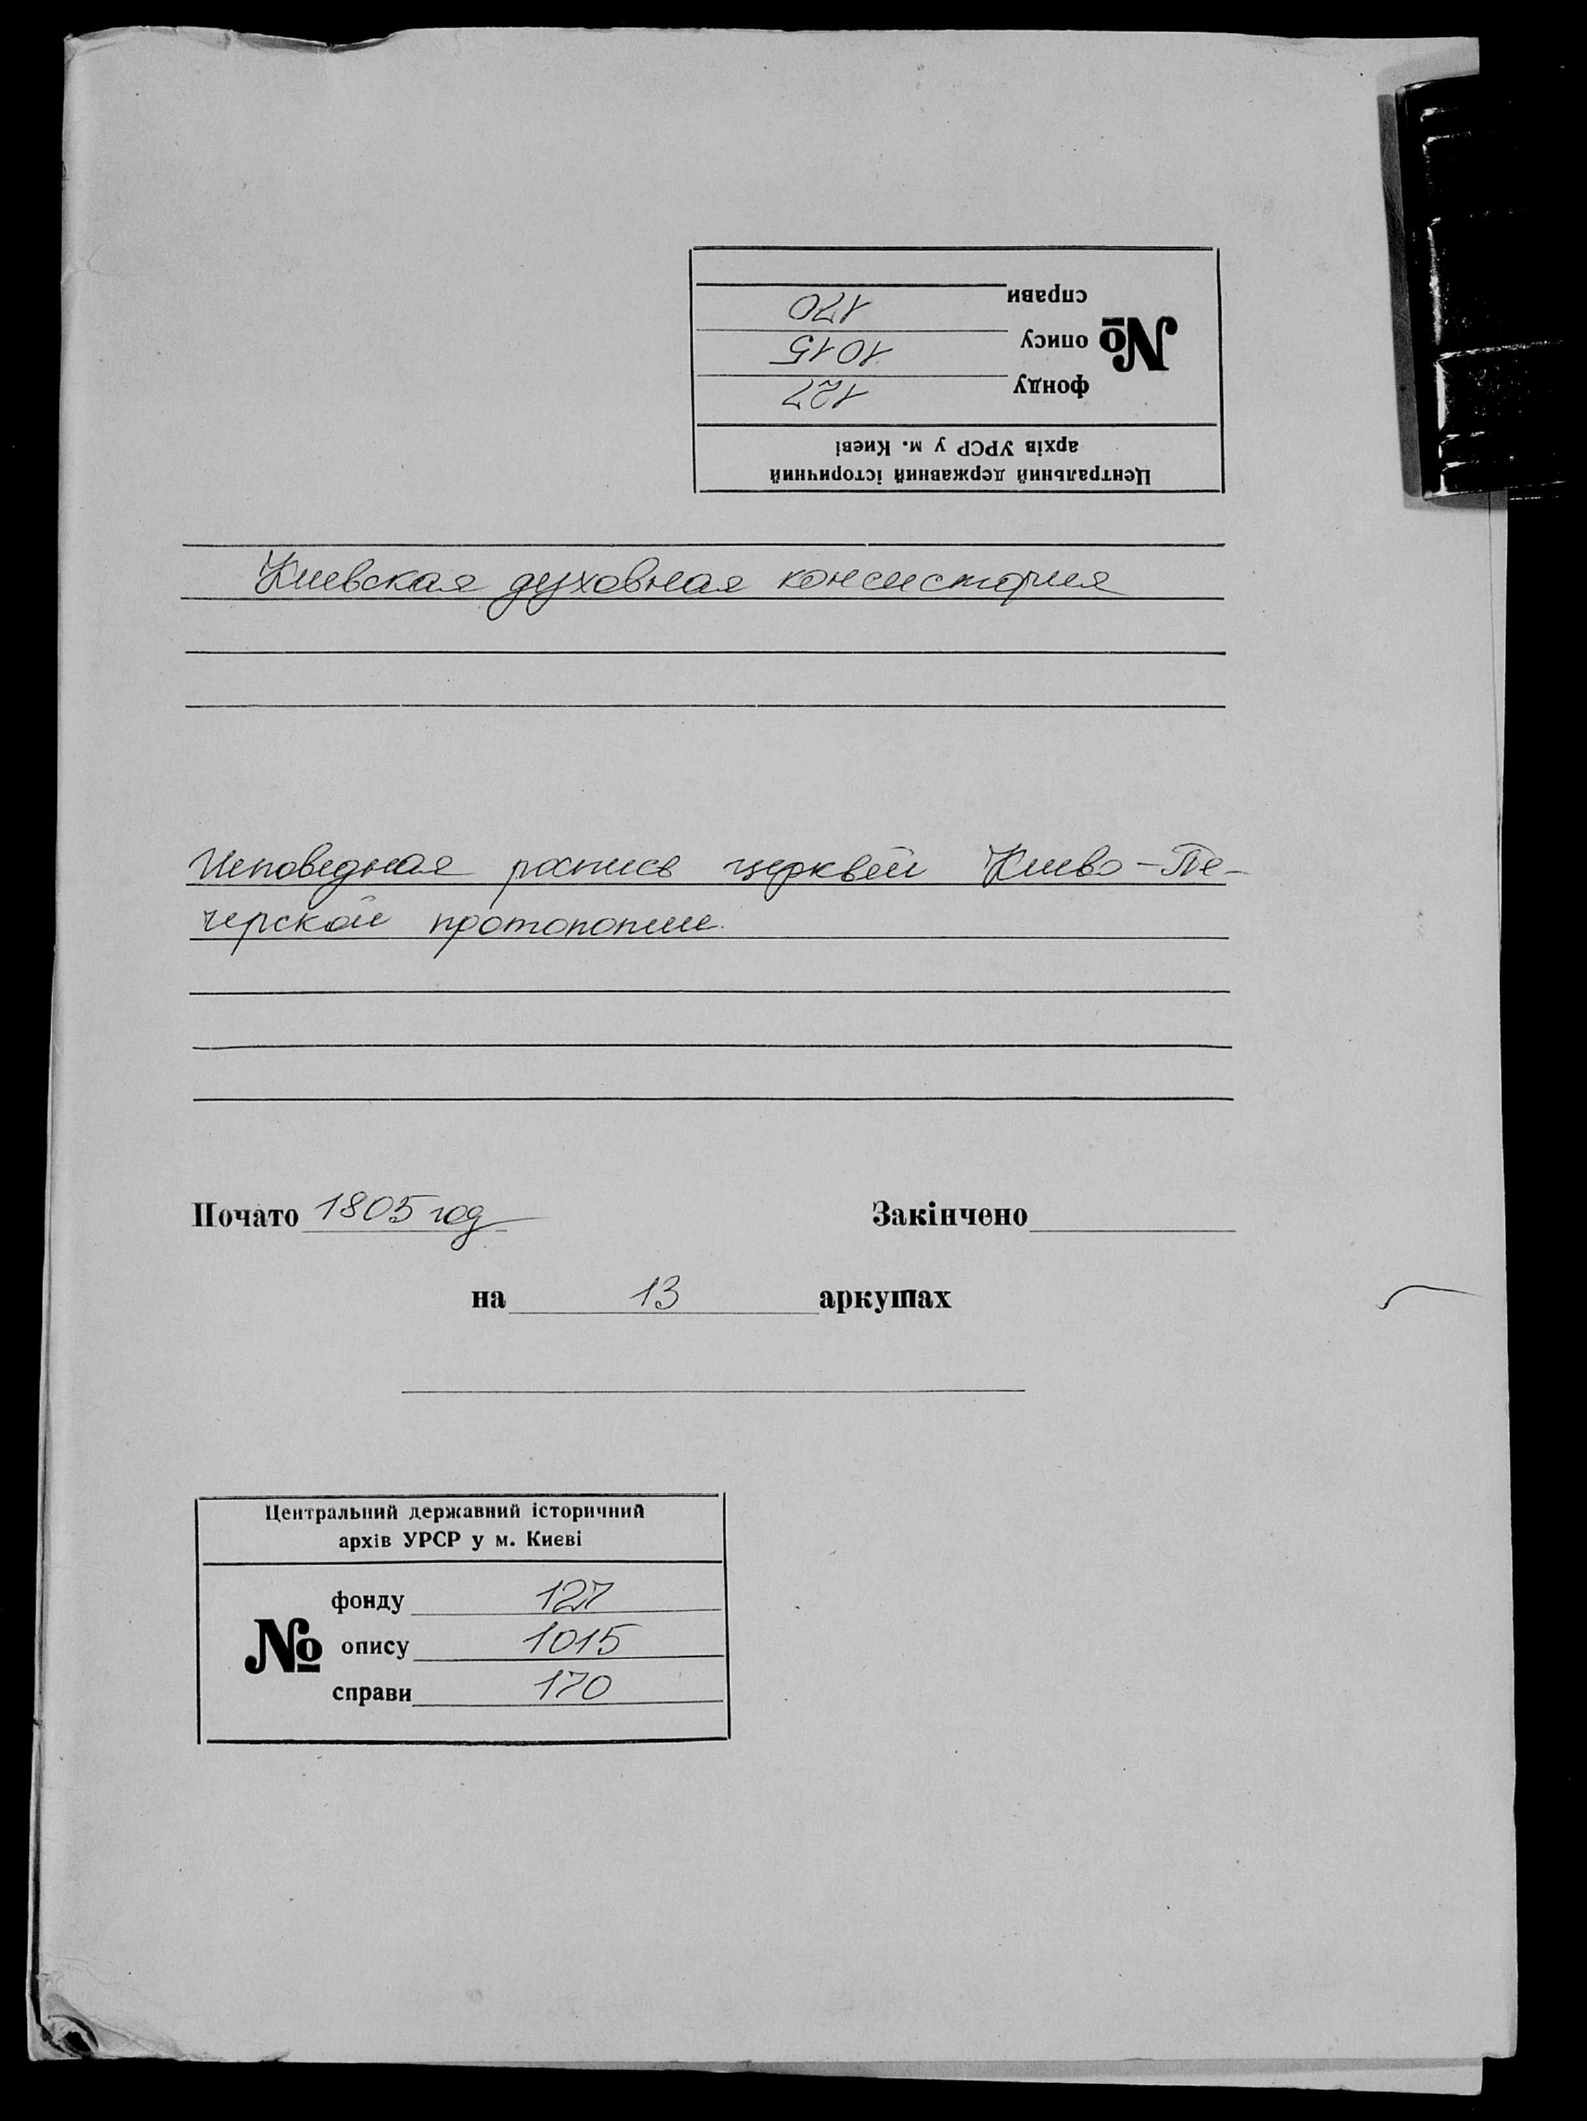 Центральний державний історичний
архів УРСР у м. Києві
№
фонду 127
опису 1015
справи 170
Киевская духовная консистория
Исповедная роспись церквей Киево-Пе-
черской протопопии.
Почато 1805 год Закінчено
на 13 аркушах
Центральний державний історичний
архів УРСР у м. Києві
№
фонду 127
опису 1015
справи 170